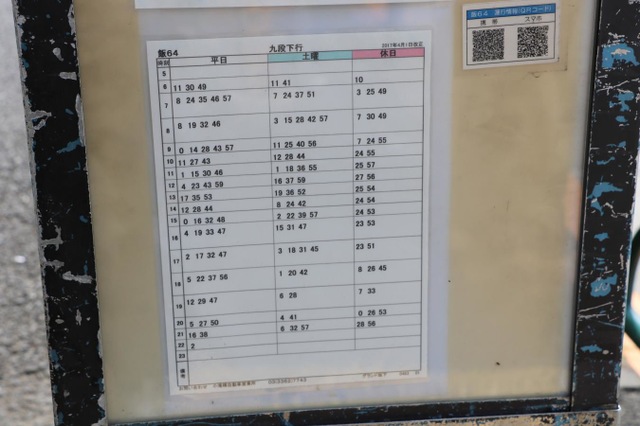 飯64 運行情報(QRコード)
携帯 スマホ
飯64 九段下行 2017年4月1日改正
時刻 平日 土曜 休日
5
6 11 30 49 11 41 10
7 8 24 35 46 57 7 24 37 51 3 25 49
8 8 19 32 46 3 15 28 42 57 7 30 49
9 0 14 28 43 57 11 25 40 56 7 24 55
10 11 27 43 12 28 44 24 55
11 1 15 30 46 1 18 36 55 25 57
12 4 23 43 59 16 37 59 27 56
13 17 35 53 19 36 52 25 54
14 12 28 44 8 24 42 24 54
15 0 16 32 48 2 22 39 57 24 53
16 4 19 33 47 15 31 47 23 53
17 2 17 32 47 3 18 31 45 23 51
18 5 22 37 56 1 20 42 8 26 45
19 12 29 47 6 28 7 33
20 5 27 50 4 41 0 26 53
21 16 38 6 32 57 28 56
22 2
23
備考